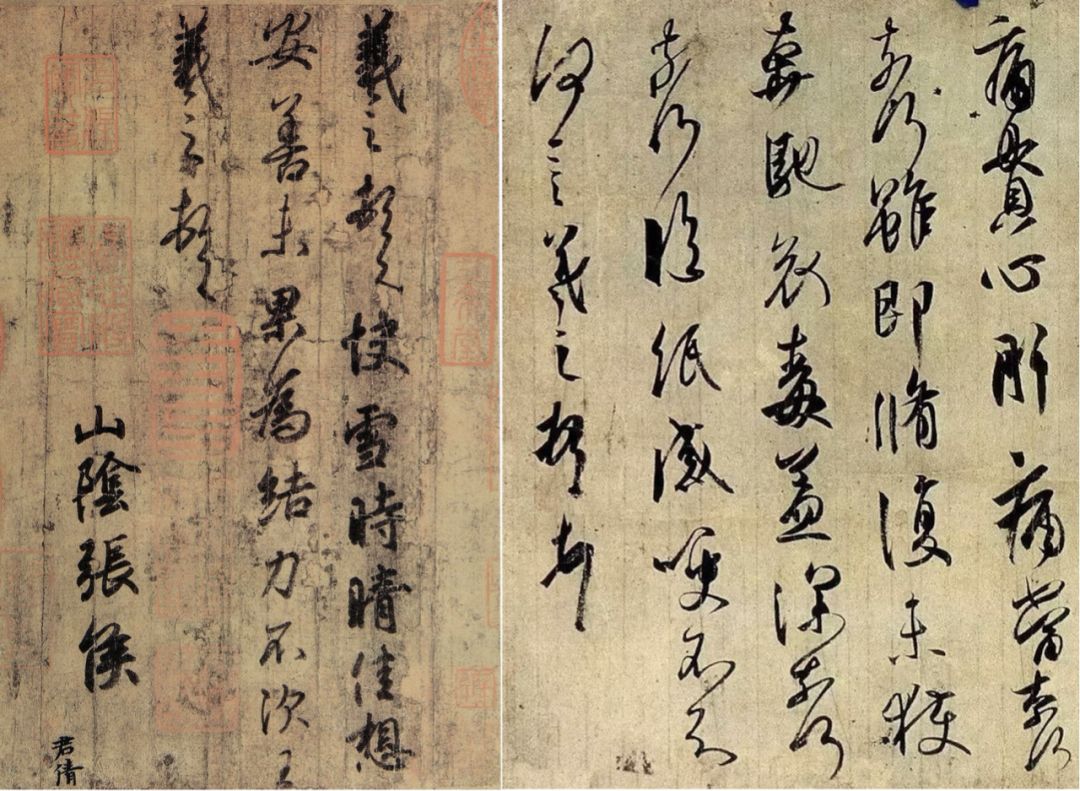 羲之頓首快雪時晴佳想
安善未果為結力不次王
羲之頓首
山陰張侯
君倩
痛貫心肝痛當柰何
柰何雖即脩復未獲
奔馳哀毒益深柰何
柰何臨紙感哽不知
何言羲之頓首頓首